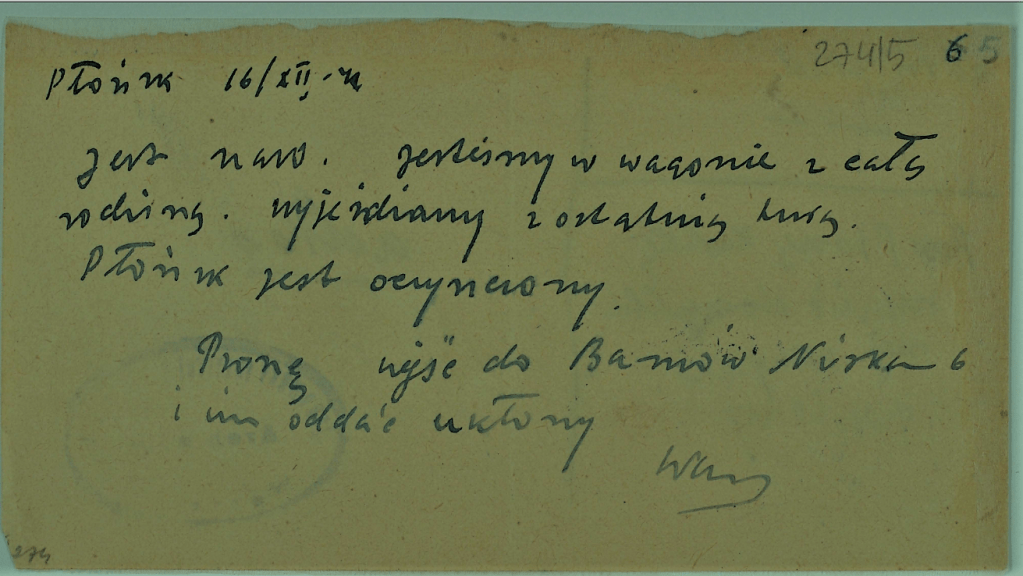 274/5 6 5
Płońsk 16/XII.
jest rano. jesteśmy w wagonie z całą
rodziną. wyjeżdżamy z ostatnią turą.
Płońsk jest oczyszczony.
Proszę wejść do Niska 6
i im oddać ukłony
274